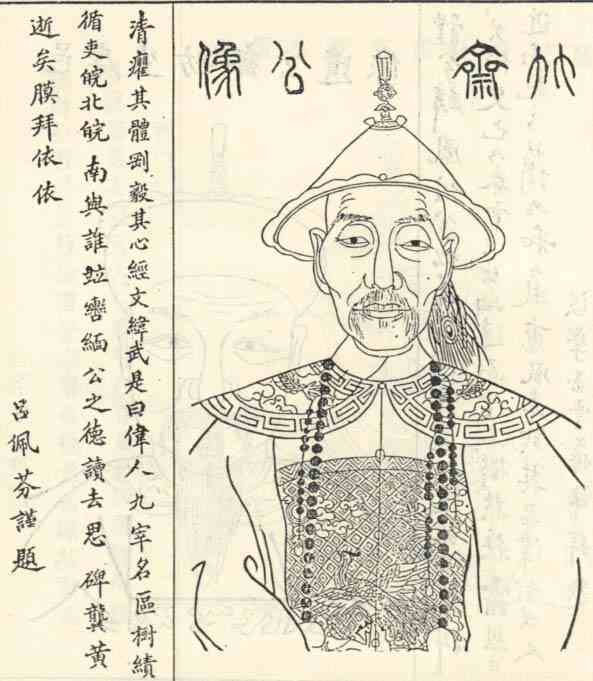 竹齋公像
清癯其體剛毅其心經文緯武是曰偉人九宰名區樹績
循吏皖北皖南與誰竝轡緬公之德讀去思碑龔黃
逝矣膜拜依依
呂佩芬謹題